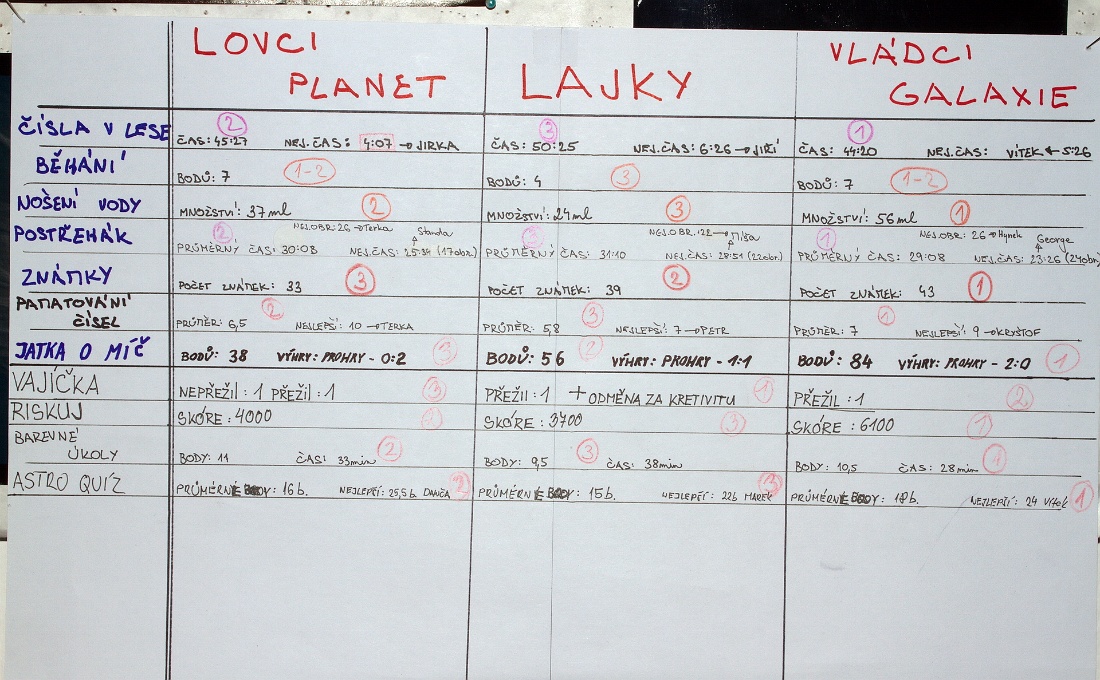 LOVCI PLANET
LAJKY
VLÁDCI GALAXIE
ČÍSLA V LESE
②
ČAS: 45:27 NEJ. ČAS: 4:07 → JIRKA
③
ČAS: 50:25 NEJ. ČAS: 6:26 → JIŘÍ
①
ČAS: 44:20 NEJ. ČAS: VÍTEK ← 5:26
BĚHÁNÍ
BODŮ: 7 1-2
BODŮ: 4 ③
BODŮ: 7 1-2
NOŠENÍ VODY
MNOŽSTVÍ: 37ml ②
MNOŽSTVÍ: 24ml ③
MNOŽSTVÍ: 56ml ①
POSTŘEHÁK
② NEJ.OBR: 26 → Terka Standa
PRŮMĚRNÝ ČAS: 30:08 NEJ. ČAS: 25:34 (17obr.)
③ NEJ.OBR.: 22 → Míša
PRŮMĚRNÝ ČAS: 31:10 NEJ. ČAS: 28:51 (22obr)
① NEJ.OBR.: 26 → Hynek George
PRŮMĚRNÝ ČAS: 29:08 NEJ. ČAS: 23:26 (24obr)
ZNÁMKY
POČET ZNÁMEK: 33 ③
POČET ZNÁMEK: 39 ②
POČET ZNÁMEK: 43 ①
PAMATOVÁNÍ
ČÍSEL
PRŮMĚR: 6,5 ② NEJLEPŠÍ: 10 → TERKA
PRŮMĚR: 5,8 ③ NEJLEPŠÍ: 7 → PETR
PRŮMĚR: 7 ① NEJLEPŠÍ: 9 → KRYŠTOF
JATKA O MÍČ
BODŮ: 38 VÝHRY: PROHRY - 0:2 ③
BODŮ: 56 ② VÝHRY: PROHRY - 1:1
BODŮ: 84 VÝHRY: PROHRY - 2:0 ①
VAJÍČKA
NEPŘEŽIL: 1 PŘEŽIL: 1 ③
PŘEŽIL: 1 + ODMĚNA ZA KRETIVITU ①
PŘEŽIL: 1 ②
RISKUJ
SKÓRE: 4000 ②
SKÓRE: 3700 ③
SKÓRE: 6100 ①
BAREVNÉ
ÚKOLY
BODY: 11 ČAS: 33min ②
BODY: 9,5 ③ ČAS: 38min
BODY: 10,5 ČAS: 28min ①
ASTRO QUIZ
PRŮMĚRNĚ BODY: 16b. NEJLEPŠÍ: 25,5b. DANČA ②
PRŮMĚRNĚ BODY: 15b. NEJLEPŠÍ: 22b MAREK ③
PRŮMĚRNĚ BODY: 18b. NEJLEPŠÍ: 24 Vítek ①